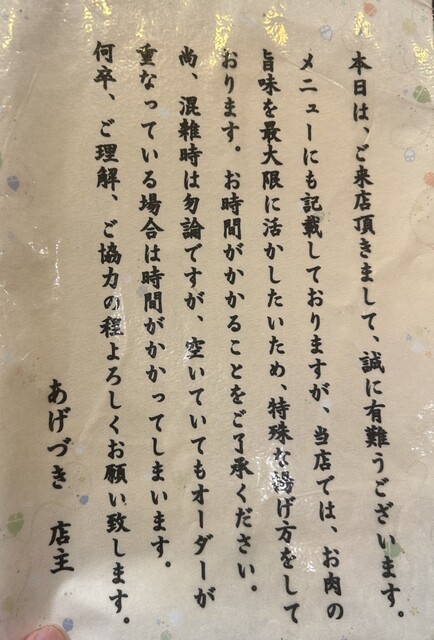 本日は、ご来店頂きまして、誠に有難うございます。
メニューにも記載しておりますが、当店では、お肉の
旨味を最大限に活かしたいため、特殊な揚げ方をして
おります。お時間がかかることをご了承ください。
尚、混雑時は勿論ですが、空いていてもオーダーが
重なっている場合は時間がかかってしまいます。
何卒、ご理解、ご協力の程よろしくお願い致します。
あげづき 店主